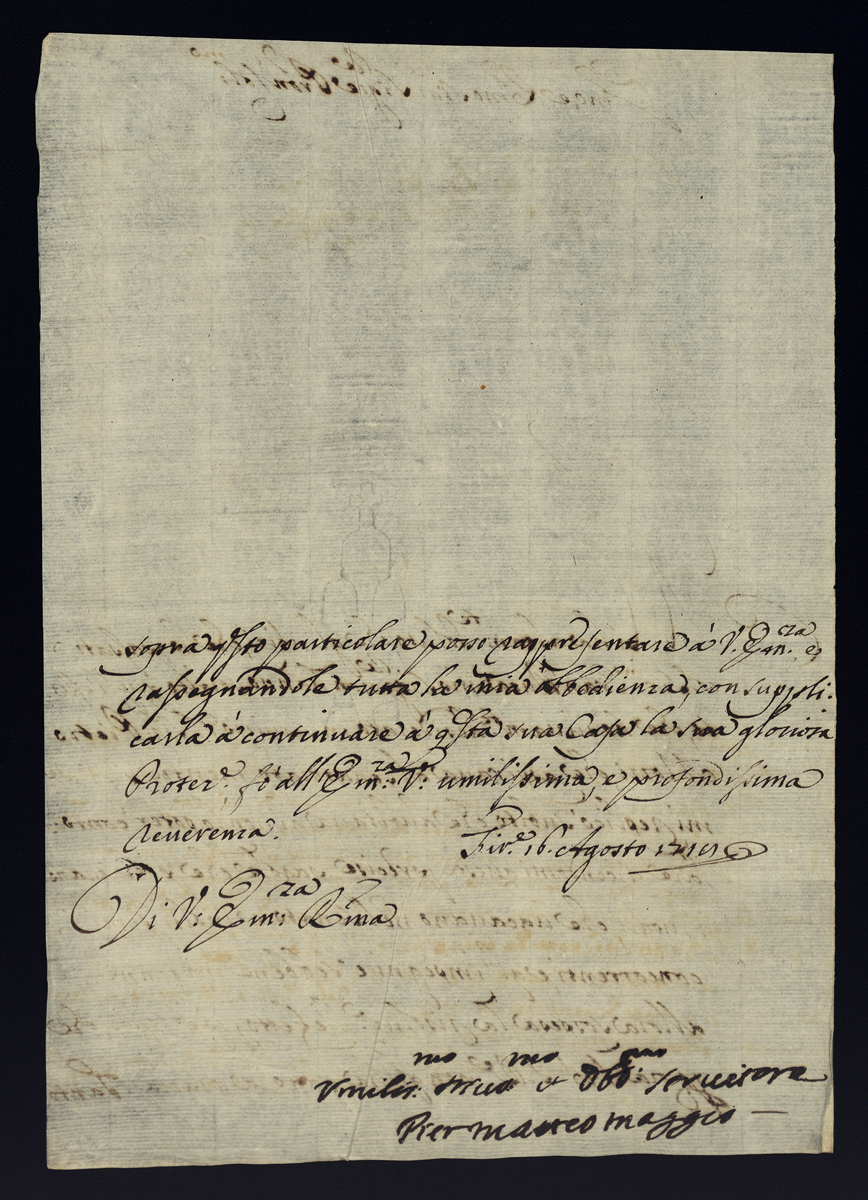 sopra q.sto particolare posso rappresentare à V. Em.za e
rassegnandole tutta la mia obbedienza, con suppli-
carla à continuare à q.sta sua Casa la sua gloriosa
Protez.e, fò all'Em.za V.a umilissima, e profondissima
reverenza.
Fir.e 16. Agosto
Di V. Em.za R.ma
Umilis.mo Deuo.mo et Obb.mo seruitore
Pier Matteo Maggio